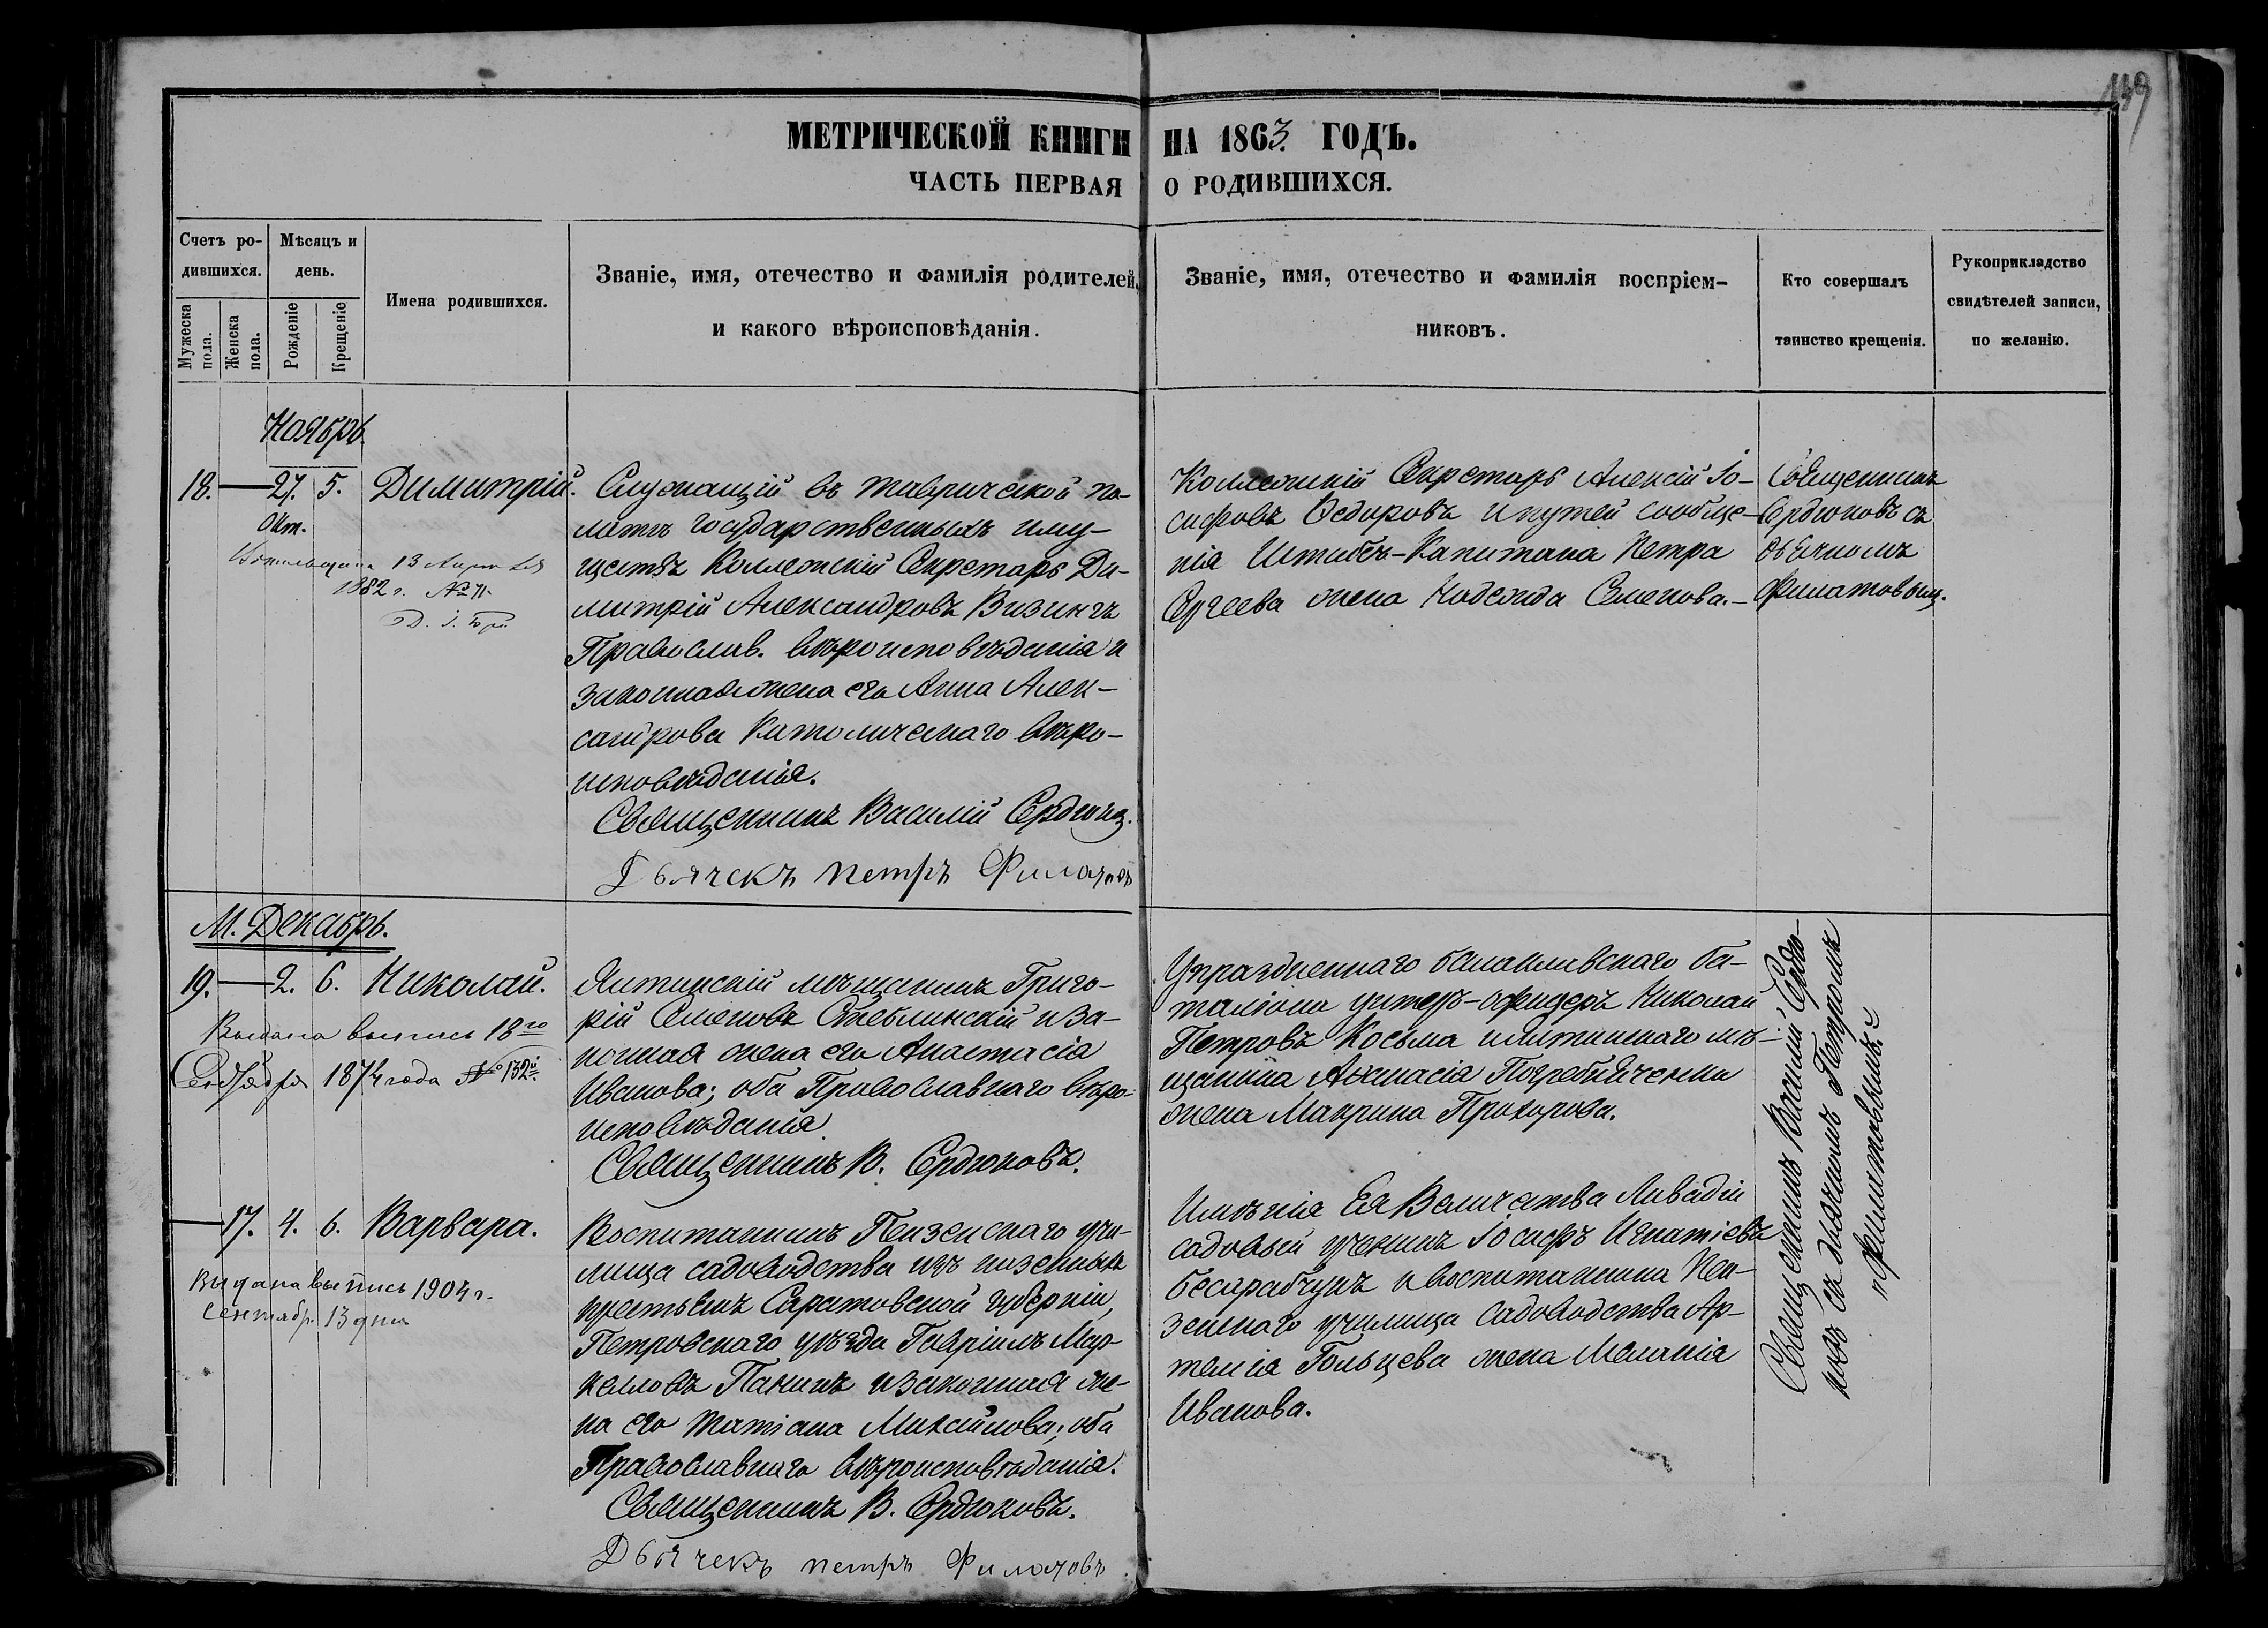 149
МЕТРИЧЕСКОЙ КНИГИ НА 1863 ГОДЪ.
ЧАСТЬ ПЕРВАЯ О РОДИВШИХСЯ.
Счетъ ро-
дившихся.
Мужеска
пола.
Женска
пола.
Мѣсяцъ и
день.
Рожденіе
Крещеніе
Имена родившихся.
Званіе, имя, отечество и фамилія родителей,
и какого вѣроисповѣданія.
Званіе, имя, отечество и фамилія воспріем-
никовъ.
Кто совершалъ
таинство крещенія.
Рукоприкладство
свидѣтелей записи,
по желанію.
Ноябрь.
18. — 27. 5. Димитрій.
Окт.
13
1882 г. №
Служащій въ Таврической па-
латѣ государственныхъ иму-
ществъ Коллежскій Секретарь Ди-
митрій Александровъ Визингъ
Православ. вѣроисповѣданія и
законная жена его Анна Алек-
сандрова Католическаго вѣро-
исповѣданія.
Священникъ Василій Сердюков.
Дьячекъ петръ Филатовъ
Коллежскій Секретарь Алексій Іо-
сифовъ Ѳедоровъ и путей сообще-
нія Штабсъ-Капитана Петра
Сергеева жена Надежда Семенова.—
Священникъ
Сердюковъ съ
дьячкомъ
Филатовым.
М. Декабрь.
19. — 2. 6. Николай.
Выдана выпись 18го
Сентября 1874 года № 132й.
Ялтинскій мѣщанинъ Григо-
рій Семеновъ Стеблинскій и за-
конная жена его Анастасія
Иванова; оба Православнаго вѣро-
исповѣданія.
Священникъ В. Сердюковъ.
Упраздненнаго балаклавскаго ба-
таліона унтеръ-офицеръ Николай
Петровъ Косьма и ялтинскаго мѣ-
щанина Аѳанасія Погребиченки
жена Маврина Прохорова.
— 17. 4. 6. Варвара.
Выдана выпись 1904 г.
Сентябр. 13 дня
Воспитанникъ Пензенскаго учи-
лища садоводства изъ казенныхъ
крестьянъ Саратовской губерніи,
Петровскаго уѣзда Гавріилъ Мар-
келловъ Панинъ и законная же-
на его Татіана Михайлова; оба
Православнаго вѣроисповѣданія.
Священникъ В. Сердюковъ.
Дьячекъ петръ Филатовъ
Имѣнія Ея Величества Ливадіи
садовый ученикъ Іосифъ Игнатіевъ
Бесарабчукъ и воспитанника Пен-
зенскаго училища садоводства Ар-
темія Гольцева жена Меланія
Иванова.
Священникъ Василій Сердю-
ковъ съ дьячкомъ Петромъ
Филатовымъ